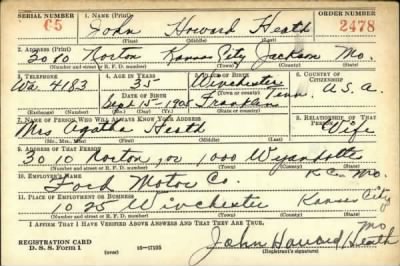 SERIAL NUMBER 1. NAME (Print) ORDER NUMBER
65 John Howard Heath 2478
(First) (Middle) (Last)
2. ADDRESS (Print)
3010 Norton Kansas City Jackson Mo.
(Number and street or R. F. D. number) (Town) (County) (State)
3. TELEPHONE 4. AGE IN YEARS 5. PLACE OF BIRTH 6. COUNTRY OF CITIZENSHIP
Wa. 4183 35 Winchester
DATE OF BIRTH (Town or county) Tenn U.S.A.
Sept 15-1905 Franklin
(Exchange) (Number) (Mo.) (Day) (Yr.) (State or country)
7. NAME OF PERSON WHO WILL ALWAYS KNOW YOUR ADDRESS 8. RELATIONSHIP OF THAT PERSON
Mrs Agatha Heath Wife
(Mr., Mrs., Miss) (First) (Middle) (Last)
9. ADDRESS OF THAT PERSON
3010 Norton, or 1000 Wyandotte
(Number and street or R. F. D. number) (Town) (County) (State)
10. EMPLOYER'S NAME K.C. Mo.
Ford Motor Co.
11. PLACE OF EMPLOYMENT OR BUSINESS Kansas City
1025 Winchester
(Number and street or R. F. D. number) (Town) (County) (State)
Mo
I AFFIRM THAT I HAVE VERIFIED ABOVE ANSWERS AND THAT THEY ARE TRUE.
REGISTRATION CARD John Howard Heath
D. S. S. Form 1 (over) 16—17105 (Registrant's signature)